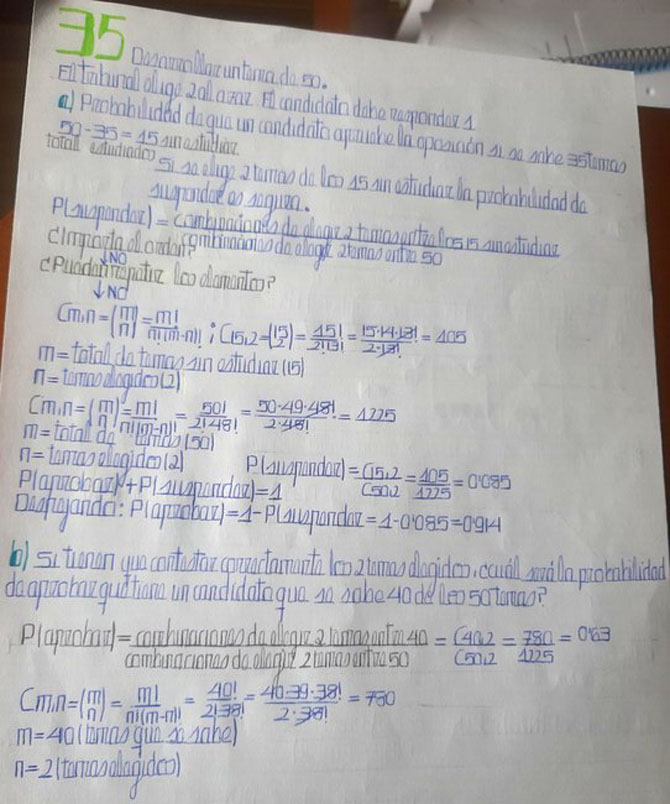 35 Desarrollar un tema de 50.
El tribunal elige 2 al azar. El candidato debe responder 1
a) Probabilidad de que un candidato apruebe la oposición si se sabe 35 temas
50 - 35 = 15 sin estudiar
total estudiados
Si se elige 2 temas de los 15 sin estudiar la probabilidad de
suspender es segura.
P(suspender) = combinaciones de elegir 2 temas entre los 15 sin estudiar
combinaciones de elegir 2 temas entre 50
¿Importa el orden?
↓ NO
¿Pueden repetir los elementos?
↓ NO
Cm,n = (m n) = m! / n!(m-n)! ; C15,2 = (15 2) = 15! / 2!13! = 15·14·13! / 2·13! = 105
m = total de temas sin estudiar (15)
n = temas elegidos (2)
Cm,n = (m n) = m! / n!(m-n)! = 50! / 2!48! = 50·49·48! / 2·48! = 1225
m = total de temas (50)
n = temas elegidos (2)
P(suspender) = C15,2 / C50,2 = 105 / 1225 = 0'085
P(aprobar) + P(suspender) = 1
Despejando: P(aprobar) = 1 - P(suspender = 1 - 0'085 = 0'914
b) Si tienen que contestar correctamente los 2 temas elegidos, cuál será la probabilidad
de aprobar que tiene un candidato que se sabe 40 de los 50 temas?
P(aprobar) = combinaciones de elegir 2 temas entre 40 / combinaciones de elegir 2 temas entre 50 = C40,2 / C50,2 = 780 / 1225 = 0'63
Cm,n = (m n) = m! / n!(m-n)! = 40! / 2!·38! = 40·39·38! / 2·38! = 780
m = 40 (temas que se sabe)
n = 2 (temas elegidos)